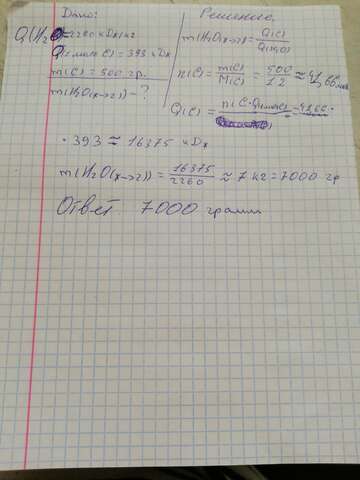 Дано:
Q(H₂O)=2260 кДж/кг
Q(1моль C) = 393 кДж
m(C) = 500 гр.
m(H₂O(ж→г)) - ?
Решение.
m(H₂O(ж→г)) = Q(C)/Q(H₂O)
n(C) = m(C)/M(C) = 500/12 ≈ 41,66 моль
Q(C) = n(C)·Q(1моль C) = 41,66 ·
· 393 ≈ 16375 кДж
m(H₂O(ж→г)) = 16375/2260 ≈ 7 кг = 7000 гр
Ответ. 7000 грамм